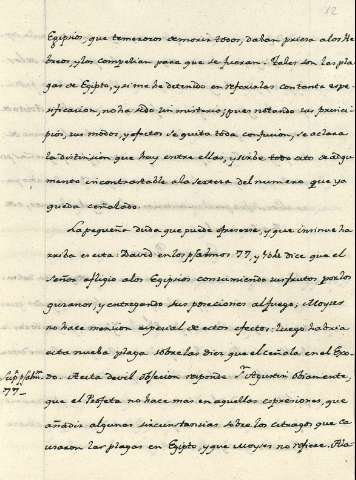 12
Egipsios, que temerosos de morir todos, daban priesa a los He
breos, y los compelian para que se fueran. Tales son las pla
gas de Egipto, y si me he detenido en referirlas con tanta espe-
sificacion, no ha sido sin misterio; pues notando sus princi-
pios, sus modos, y efectos se quita toda confucion, se aclara
la distinsion que hay entre ellas, y sirbe todo esto de àrgu
mento incontrastable a la serteza del numero que ya
queda señalado.
La pequeña duda que puede oponerse, y que insinue ha
arriba es esta: David en los psalmos 77, y dice que el
Señor afligio a los Egipsios consumiendo sus frutos por los
gusanos, y entregando sus posesiones al fuego; Moyses
no hace mencion especial de estos efectos: luego habria
otra nueba plaga sobre las dies que el señala en el Exo-
do. A esta devil obsecion responde S.ⁿ Agustin obiamente,
Sup. psalm.
77_
que el Profeta no hace mas en aquellas espresiones, que
añadir algunas sircunstancias sobre los estragos que ca
usaron las plagas en Egipto, y que Moyses no refiere.